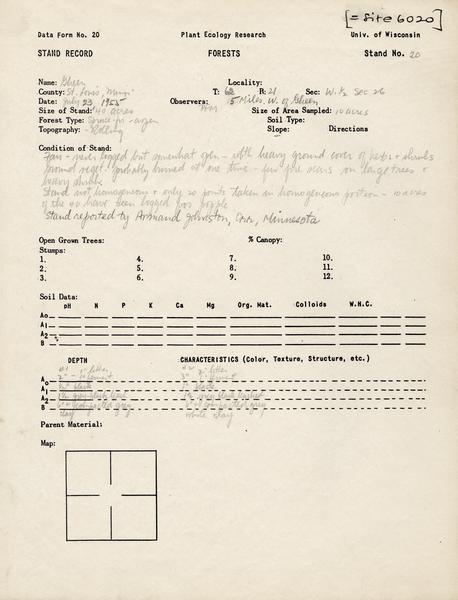 [= Site 6020]
Data Form No. 20 Plant Ecology Research Univ. of Wisconsin
STAND RECORD FORESTS Stand No. 20
Name: Gheen Locality:
County: St. Louis, Minn. T: 62 R: 21 Sec: W.½ Sec 26
Date: July 23 1955 Observers: 5 Miles W. of Gheen
Size of Stand: 40 acres Size of Area Sampled: 10 acres
Forest Type: Spruce-fir - aspen Soil Type:
Topography: - Rolling Slope: Directions
Condition of Stand:
Fair - never logged but somewhat open - with heavy ground cover of herbs + shrubs
probably burned at one time - few fire scars on large trees +
heavy shrubs
Stand not homogeneous + only 20 points taken in homogeneous portion - 10 acres
of the 40 have been logged for
Stand reported by Armand Johnston, Orr, Minnesota
Open Grown Trees: % Canopy:
Stumps:
1. 4. 7. 10.
2. 5. 8. 11.
3. 6. 9. 12.
Soil Data:
pH N P K Ca Mg Org. Mat. Colloids W.H.C.
Ao
A1
A2
B
DEPTH CHARACTERISTICS (Color, Texture, Structure, etc.)
#1 litter #2 litter
Ao
A1 black black
A2
B
clay clay
Parent Material:
Map: